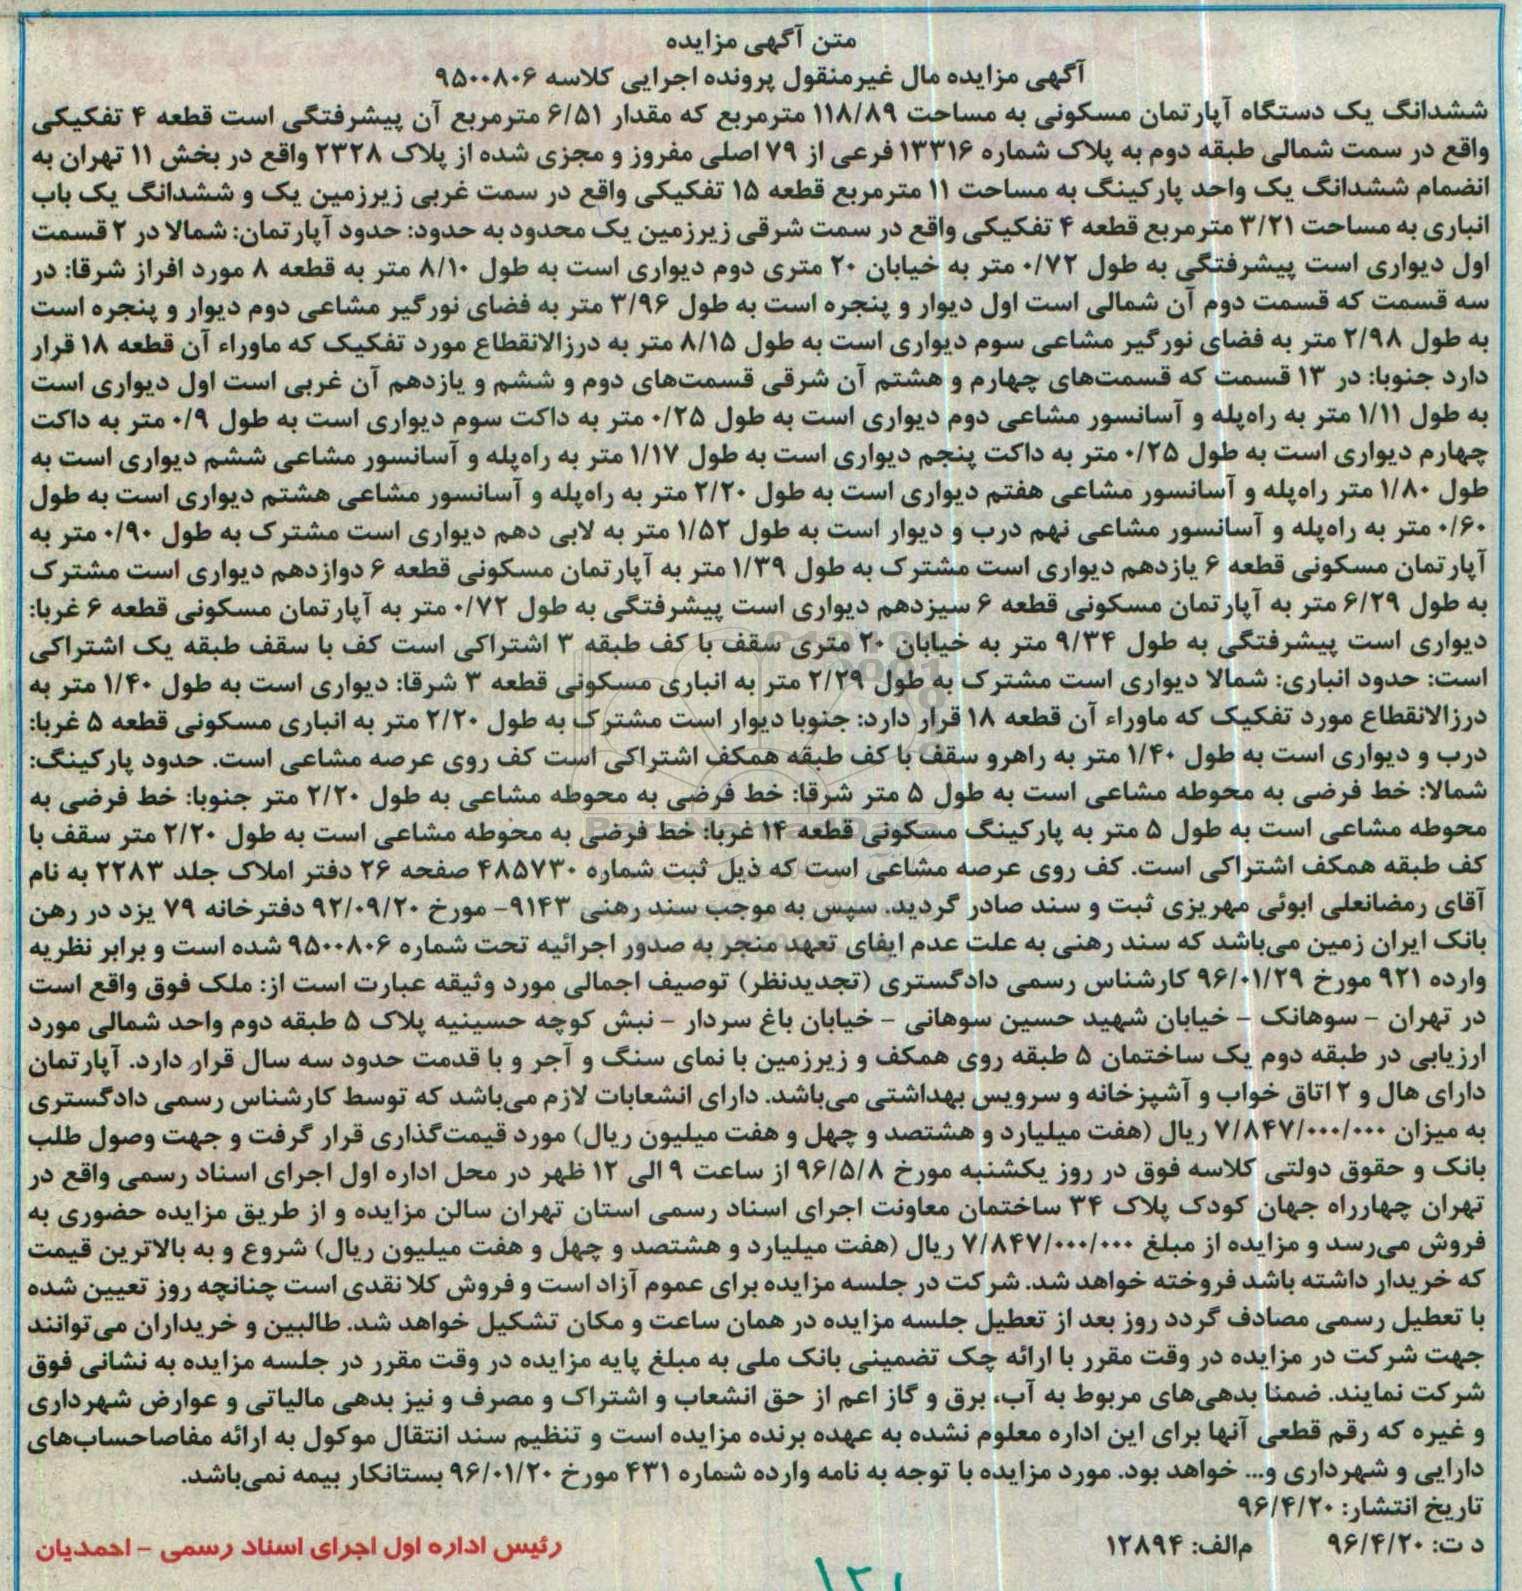 متن آگهی مزایده
آگهی مزایده مال غیرمنقول پرونده اجرایی کلاسه ۹۵۰۰۸۰۶
ششدانگ یک دستگاه آپارتمان مسکونی به مساحت ۱۱۸/۸۹ مترمربع که مقدار ۶/۵۱ مترمربع آن پیشرفتگی است قطعه ۴ تفکیکی
واقع در سمت شمالی طبقه دوم به پلاک شماره ۱۳۳۱۶ فرعی از ۷۹ اصلی مفروز و مجزی شده از پلاک ۲۳۲۸ واقع در بخش ۱۱ تهران به
انضمام ششدانگ یک واحد پارکینگ به مساحت ۱۱ مترمربع قطعه ۱۵ تفکیکی واقع در سمت غربی زیرزمین یک و ششدانگ یک باب
انباری به مساحت ۳/۲۱ مترمربع قطعه ۴ تفکیکی واقع در سمت شرقی زیرزمین یک محدود به حدود: حدود آپارتمان: شمالا در ۲ قسمت
اول دیواری است پیشرفتگی به طول ۰/۷۲ متر به خیابان ۲۰ متری دوم دیواری است به طول ۸/۱۰ متر به قطعه ۸ مورد افراز شرقا: در
سه قسمت که قسمت دوم آن شمالی است اول دیوار و پنجره است به طول ۳/۹۶ متر به فضای نورگیر مشاعی دوم دیوار و پنجره است
به طول ۲/۹۸ متر به فضای نورگیر مشاعی سوم دیواری است به طول ۸/۱۵ متر به درزالانقطاع مورد تفکیک که ماوراء آن قطعه ۱۸ قرار
دارد جنوبا: در ۱۳ قسمت که قسمت‌های چهارم و هشتم آن شرقی قسمت‌های دوم و ششم و یازدهم آن غربی است اول دیواری است
به طول ۱/۱۱ متر به راه‌پله و آسانسور مشاعی دوم دیواری است به طول ۰/۲۵ متر به داکت سوم دیواری است به طول ۰/۹ متر به داکت
چهارم دیواری است به طول ۰/۲۵ متر به داکت پنجم دیواری است به طول ۱/۱۷ متر به راه‌پله و آسانسور مشاعی ششم دیواری است به
طول ۱/۸۰ متر راه‌پله و آسانسور مشاعی هفتم دیواری است به طول ۲/۲۰ متر به راه‌پله و آسانسور مشاعی هشتم دیواری است به طول
۰/۶۰ متر به راه‌پله و آسانسور مشاعی نهم درب و دیوار است به طول ۱/۵۲ متر به لابی دهم دیواری است مشترک به طول ۰/۹۰ متر به
آپارتمان مسکونی قطعه ۶ یازدهم دیواری است مشترک به طول ۱/۳۹ متر به آپارتمان مسکونی قطعه ۶ دوازدهم دیواری است مشترک
به طول ۶/۲۹ متر به آپارتمان مسکونی قطعه ۶ سیزدهم دیواری است پیشرفتگی به طول ۰/۷۲ متر به آپارتمان مسکونی قطعه ۶ غربا:
دیواری است پیشرفتگی به طول ۹/۳۴ متر به خیابان ۲۰ متری سقف با کف طبقه ۳ اشتراکی است کف با سقف طبقه یک اشتراکی
است: حدود انباری: شمالا دیواری است مشترک به طول ۲/۲۹ متر به انباری مسکونی قطعه ۳ شرقا: دیواری است به طول ۱/۴۰ متر به
درزالانقطاع مورد تفکیک که ماوراء آن قطعه ۱۸ قرار دارد: جنوبا دیوار است مشترک به طول ۲/۲۰ متر به انباری مسکونی قطعه ۵ غربا:
درب و دیواری است به طول ۱/۴۰ متر به راهرو سقف با کف طبقه همکف اشتراکی است کف روی عرصه مشاعی است. حدود پارکینگ:
شمالا: خط فرضی به محوطه مشاعی است به طول ۵ متر شرقا: خط فرضی به محوطه مشاعی به طول ۲/۲۰ متر جنوبا: خط فرضی به
محوطه مشاعی است به طول ۵ متر به پارکینگ مسکونی قطعه ۱۴ غربا: خط فرضی به محوطه مشاعی است به طول ۲/۲۰ متر سقف با
کف طبقه همکف اشتراکی است. کف روی عرصه مشاعی است که ذیل ثبت شماره ۴۸۵۷۳۰ صفحه ۲۶ دفتر املاک جلد ۲۲۸۳ به نام
آقای رمضانعلی ابوئی مهریزی ثبت و سند صادر گردید. سپس به موجب سند رهنی ۹۱۴۳- مورخ ۹۲/۰۹/۲۰ دفترخانه ۷۹ یزد در رهن
بانک ایران زمین می‌باشد که سند رهنی به علت عدم ایفای تعهد منجر به صدور اجرائیه تحت شماره ۹۵۰۰۸۰۶ شده است و برابر نظریه
وارده ۹۲۱ مورخ ۹۶/۰۱/۲۹ کارشناس رسمی دادگستری (تجدیدنظر) توصیف اجمالی مورد وثیقه عبارت است از: ملک فوق واقع است
در تهران - سوهانک - خیابان شهید حسین سوهانی - خیابان باغ سردار - نبش کوچه حسینیه پلاک ۵ طبقه دوم واحد شمالی مورد
ارزیابی در طبقه دوم یک ساختمان ۵ طبقه روی همکف و زیرزمین با نمای سنگ و آجر و با قدمت حدود سه سال قرار دارد. آپارتمان
دارای هال و ۲ اتاق خواب و آشپزخانه و سرویس بهداشتی می‌باشد. دارای انشعابات لازم می‌باشد که توسط کارشناس رسمی دادگستری
به میزان ۷/۸۴۷/۰۰۰/۰۰۰ ریال (هفت میلیارد و هشتصد و چهل و هفت میلیون ریال) مورد قیمت‌گذاری قرار گرفت و جهت وصول طلب
بانک و حقوق دولتی کلاسه فوق در روز یکشنبه مورخ ۹۶/۵/۸ از ساعت ۹ الی ۱۲ ظهر در محل اداره اول اجرای اسناد رسمی واقع در
تهران چهارراه جهان کودک پلاک ۳۴ ساختمان معاونت اجرای اسناد رسمی استان تهران سالن مزایده و از طریق مزایده حضوری به
فروش می‌رسد و مزایده از مبلغ ۷/۸۴۷/۰۰۰/۰۰۰ ریال (هفت میلیارد و هشتصد و چهل و هفت میلیون ریال) شروع و به بالاترین قیمت
که خریدار داشته باشد فروخته خواهد شد. شرکت در جلسه مزایده برای عموم آزاد است و فروش کلا نقدی است چنانچه روز تعیین شده
با تعطیل رسمی مصادف گردد روز بعد از تعطیل جلسه مزایده در همان ساعت و مکان تشکیل خواهد شد. طالبین و خریداران می‌توانند
جهت شرکت در مزایده در وقت مقرر با ارائه چک تضمینی بانک ملی به مبلغ پایه مزایده در وقت مقرر در جلسه مزایده به نشانی فوق
شرکت نمایند. ضمنا بدهی‌های مربوط به آب، برق و گاز اعم از حق انشعاب و اشتراک و مصرف و نیز بدهی مالیاتی و عوارض شهرداری
و غیره که رقم قطعی آنها برای این اداره معلوم نشده به عهده برنده مزایده است و تنظیم سند انتقال موکول به ارائه مفاصاحساب‌های
دارایی و شهرداری و... خواهد بود. مورد مزایده با توجه به نامه وارده شماره ۴۳۱ مورخ ۹۶/۰۱/۲۰ بستانکار بیمه نمی‌باشد.
تاریخ انتشار: ۹۶/۴/۲۰
د ت: ۹۶/۴/۲۰ م‌الف: ۱۲۸۹۴
رئیس اداره اول اجرای اسناد رسمی - احمدیان